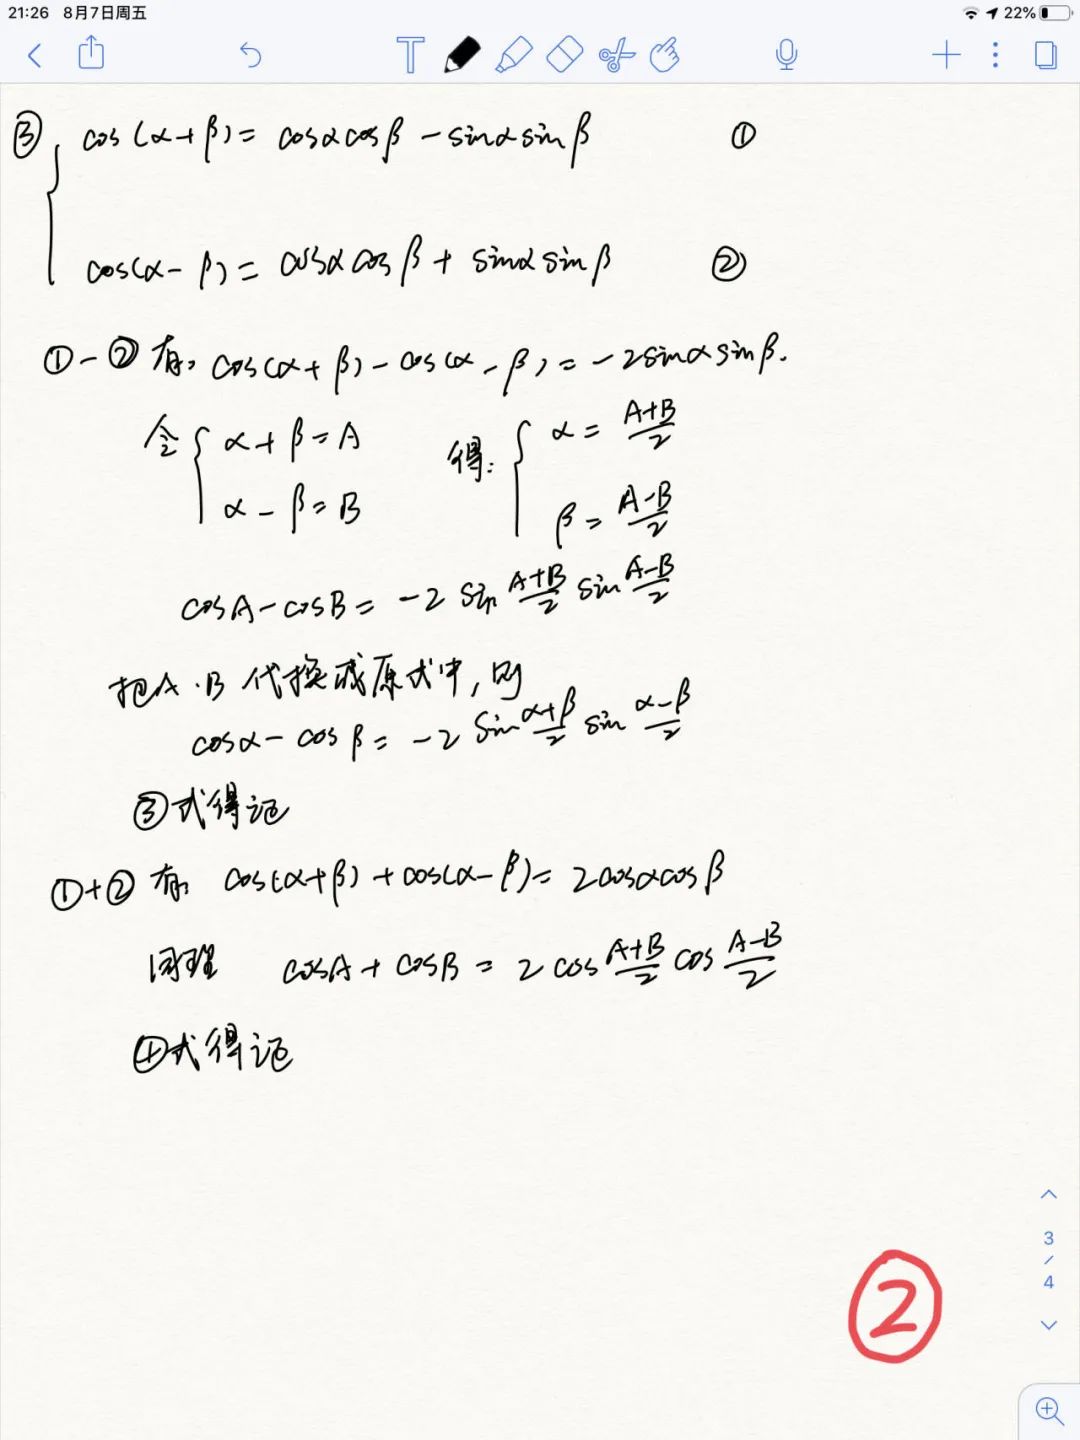 21:26 8月7日周五
22%
T
③ cos(α+β)= cosαcosβ -sinαsinβ ①
cos(α-β)= cosαcosβ + sinαsinβ ②
①-② 有, cos(α+β)-cos(α-β)=-2sinαsinβ.
令 { α+β=A 得: { α= A+B/2
α-β=B β= A-B/2
cosA-cosB= -2 sin A+B/2 sin A-B/2
把A.B 代换成原式中,则
cosα- cosβ= -2 sin α+β/2 sin α-β/2
③式得记
①+② 有, cos(α+β)+cos(α-β)= 2cosαcosβ
同理 cosA + cosB = 2 cos A+B/2 cos A-B/2
④式得记
3
/
4
2